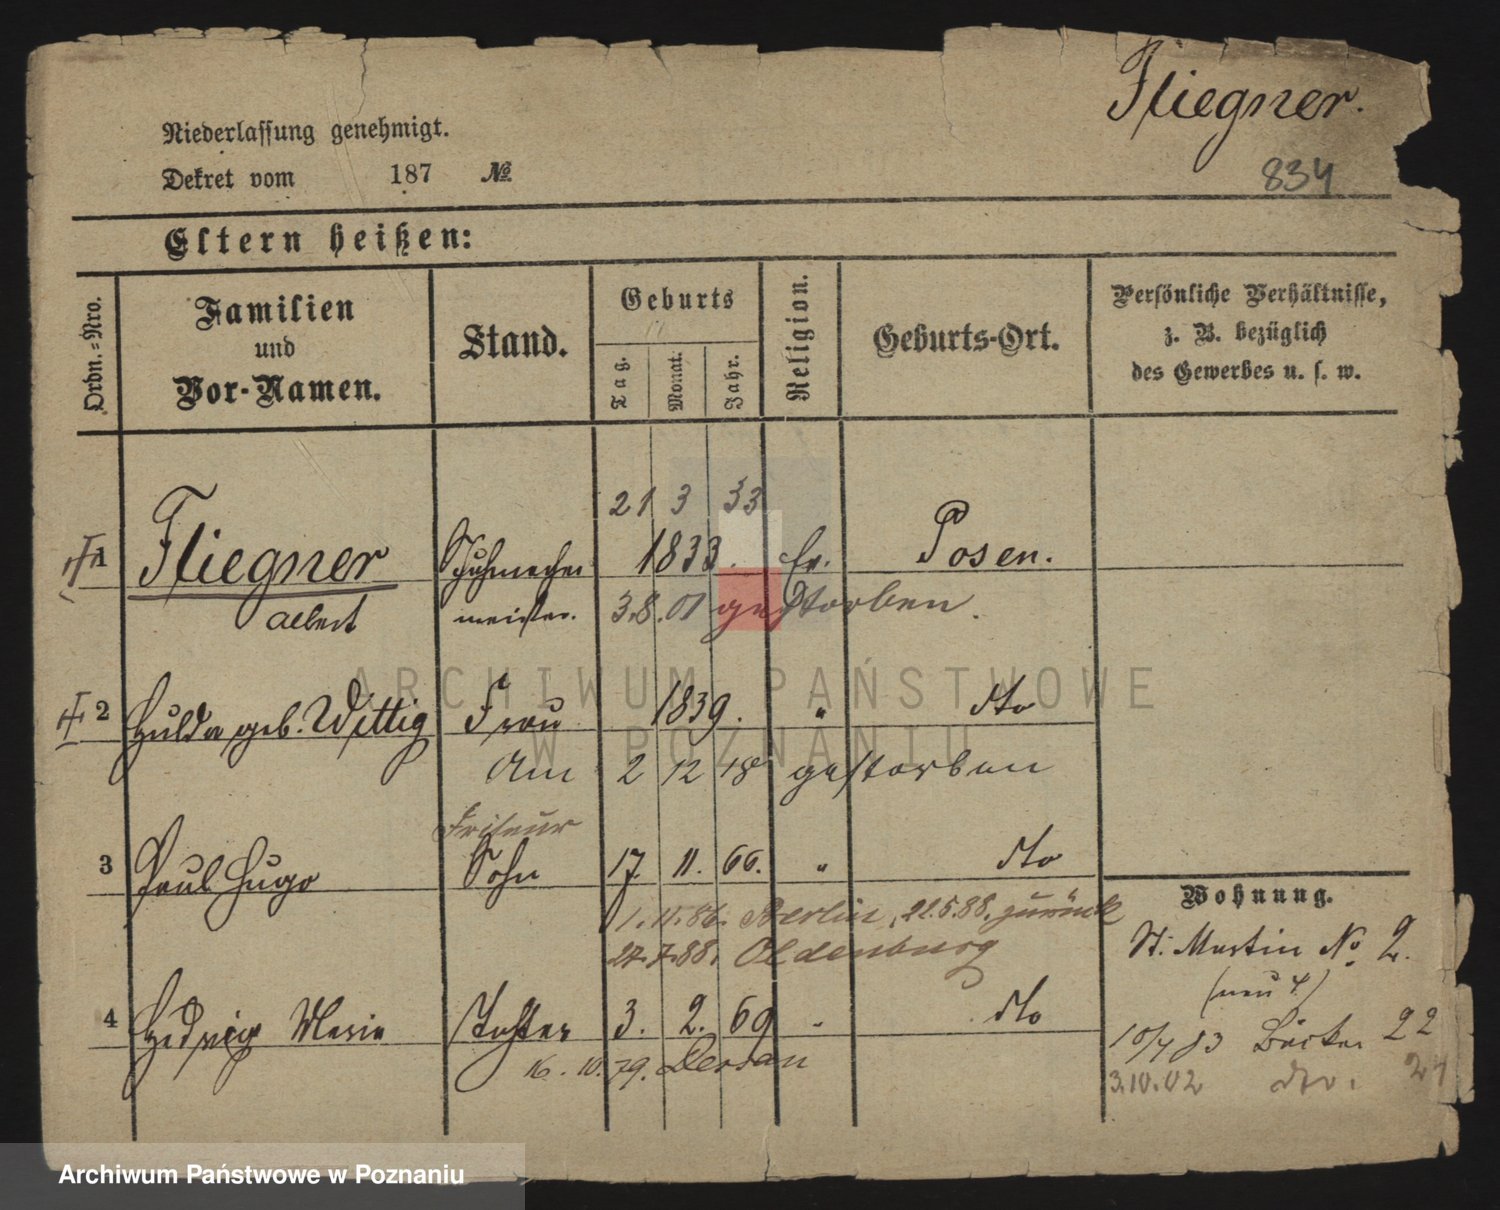 Fliegner.
Niederlassung genehmigt.
Dekret vom 187 №
834
Eltern heißen:
Ordn.-Nro.
Familien und Vor-Namen.
Stand.
Geburts
Tag. Monat. Jahr.
Religion.
Geburts-Ort.
Persönliche Verhältnisse,
z. B. bezüglich
des Gewerbes u. s. w.
21 3 33
1 Fliegner Schuhmacher 1833. Ev. Posen.
Albert meister. 3.8.01 gestorben.
2 Hulda geb. Wittig Frau 1839. " dto
Am 2 12 18 gestorben
Friseur
3 Paul Hugo Sohn 17. 11. 66. " dto
1.11.86. Berlin, 22.5.88. zurück
27.7.88. Oldenburg
4 Hedwig Marie Tochter 3. 2. 69 " dto
16. 10. 79.
Wohnung.
St. Martin No 2.
(neu 4)
10/4 83 Bäcker 22
3.10.02 dto. 24
ARCHIWUM PAŃSTWOWE
W POZNANIU
Archiwum Państwowe w Poznaniu